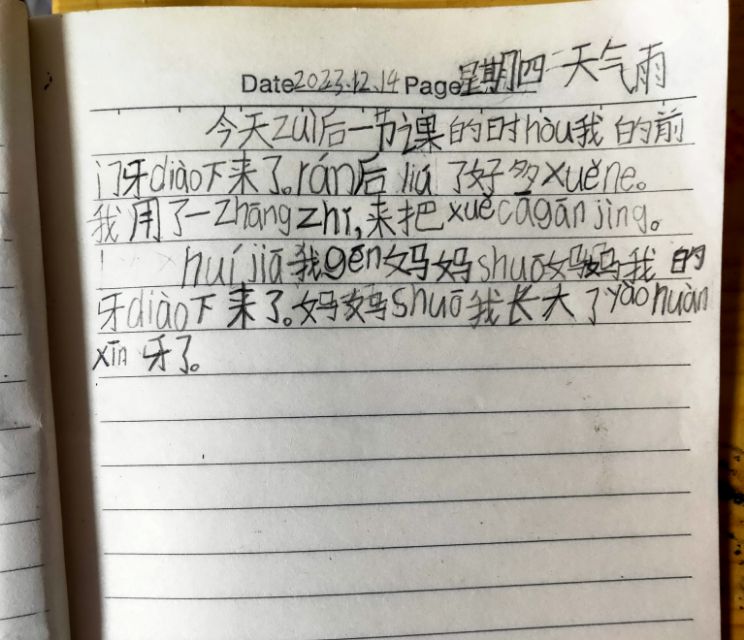 Date 2023.12.14 Page 星期四 天气雨
今天zuì后一节课的时hòu我的前
门牙diào下来了。rán后liú了好多xuěne。
我用了一zhāngzhǐ,来把xuěcāgānjìng。
huíjiā我gēn妈妈shuō妈妈我的
牙diào下来了。妈妈shuō我长大了yàohuàn
xīn牙了。